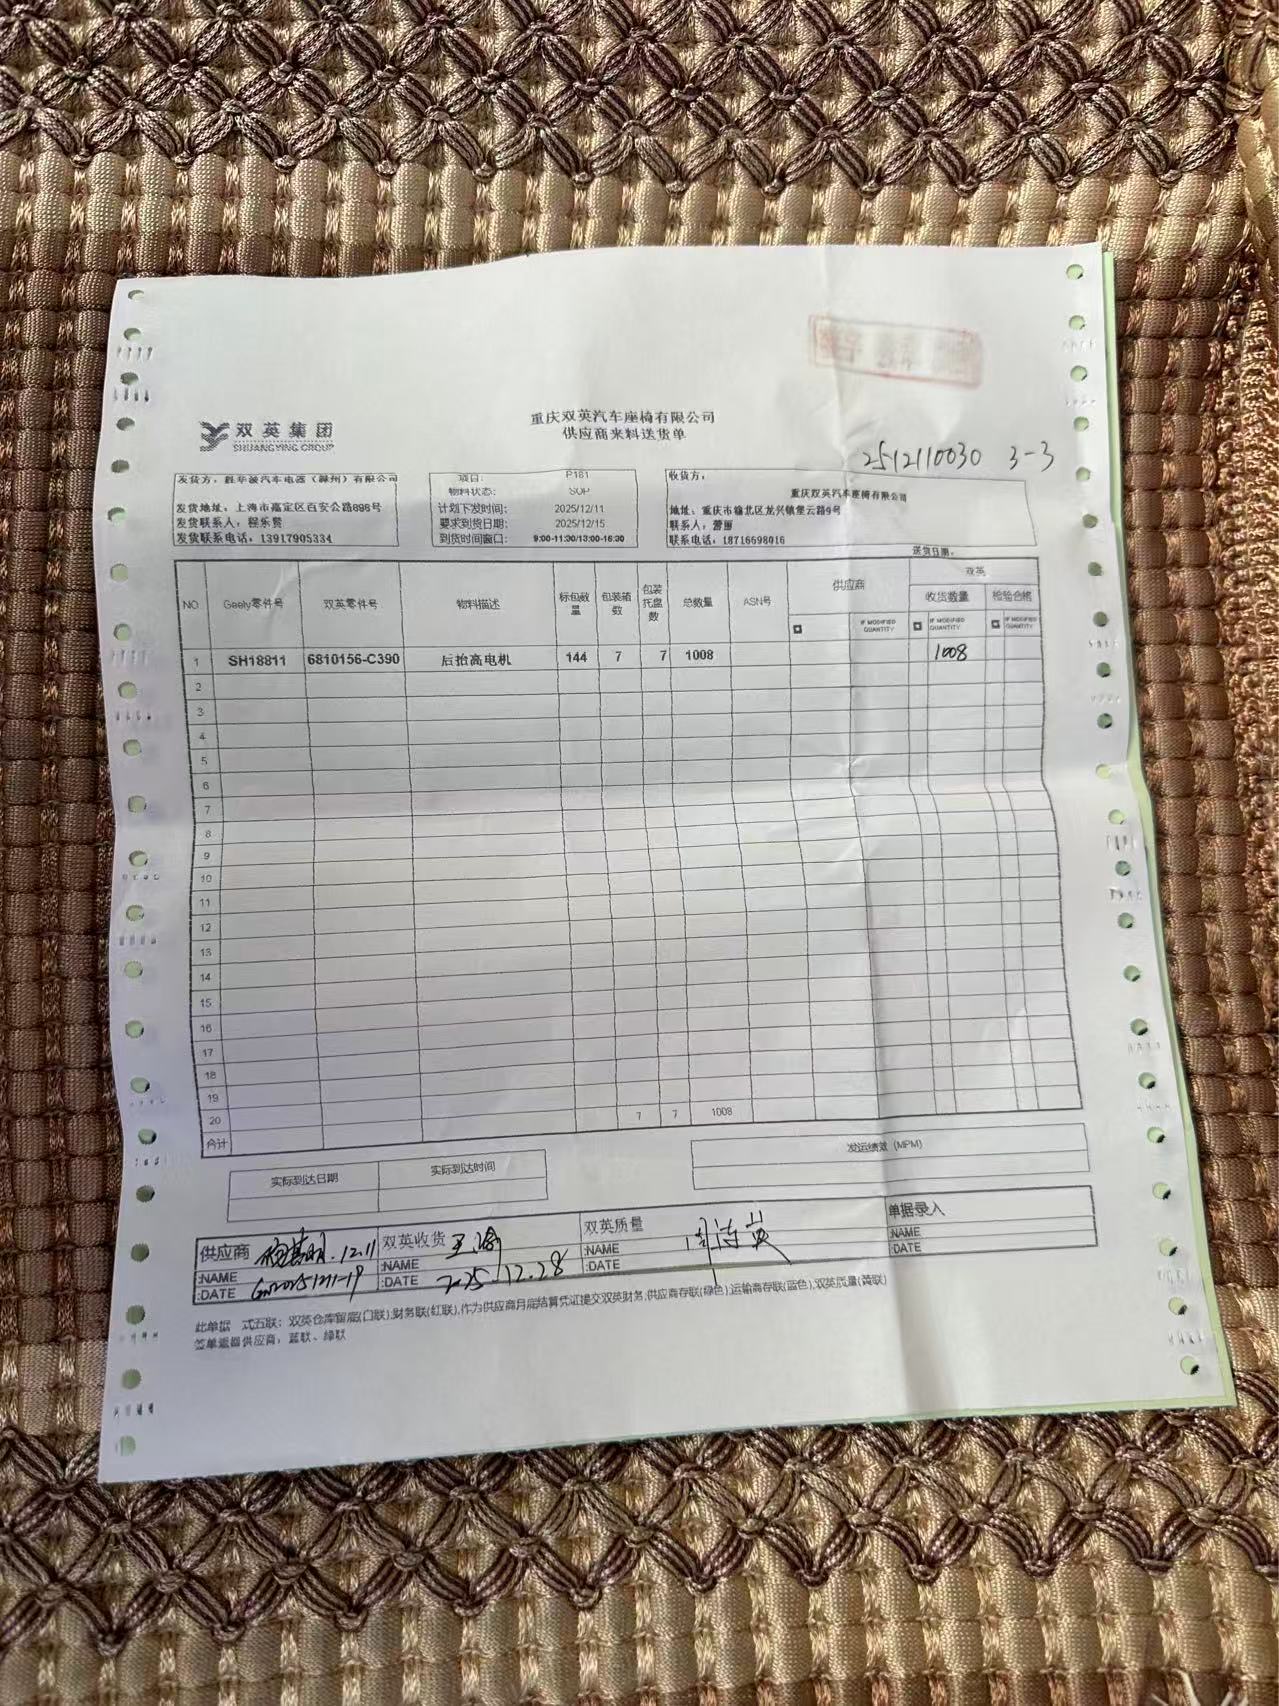 双英集团
SHUANGYING GROUP
重庆双英汽车座椅有限公司
供应商来料送货单
2512110030 3-3
发货方：胜华波汽车电器（滁州）有限公司
发货地址：上海市嘉定区百安公路898号
发货联系人：程乐贤
发货联系电话：13917905334
项目： P181
物料状态： SOP
计划下发时间： 2025/12/11
要求到货日期： 2025/12/15
到货时间窗口： 9:00-11:30/13:00-16:30
收货方：
重庆双英汽车座椅有限公司
地址：重庆市渝北区龙兴镇堡云路9号
联系人：萧丽
联系电话：18716698016
送货日期：
NO Geely零件号 双英零件号 物料描述 标包数量 包装箱数 包装托盘数 总数量 ASN号 供应商 双英
收货数量 检验合格
IF MODIFIED QUANTITY IF MODIFIED QUANTITY IF MODIFIED QUANTITY
1 SH18811 6810156-C390 后抬高电机 144 7 7 1008 1008
2
3
4
5
6
7
8
9
10
11
12
13
14
15
16
17
18
19
20 7 7 1008
合计
实际到达日期 实际到达时间
发运绩效（MPM）
供应商 12.11 双英收货 双英质量 单据录入
:NAME :NAME :NAME :NAME
:DATE :DATE 2025.12.28 :DATE :DATE
此单据 式五联：双英仓库留底(门联),财务联(红联),作为供应商月底结算凭证提交双英财务,供应商存联(绿色),运输商存联(蓝色),双英质量(黄联)
签单返回供应商：蓝联、绿联